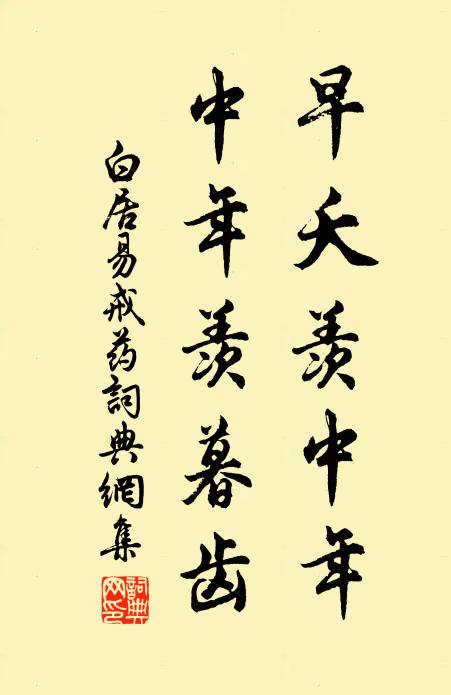 早夭羨中年
中年羨暮齿
白居易戒药詞典網集
詞典网印